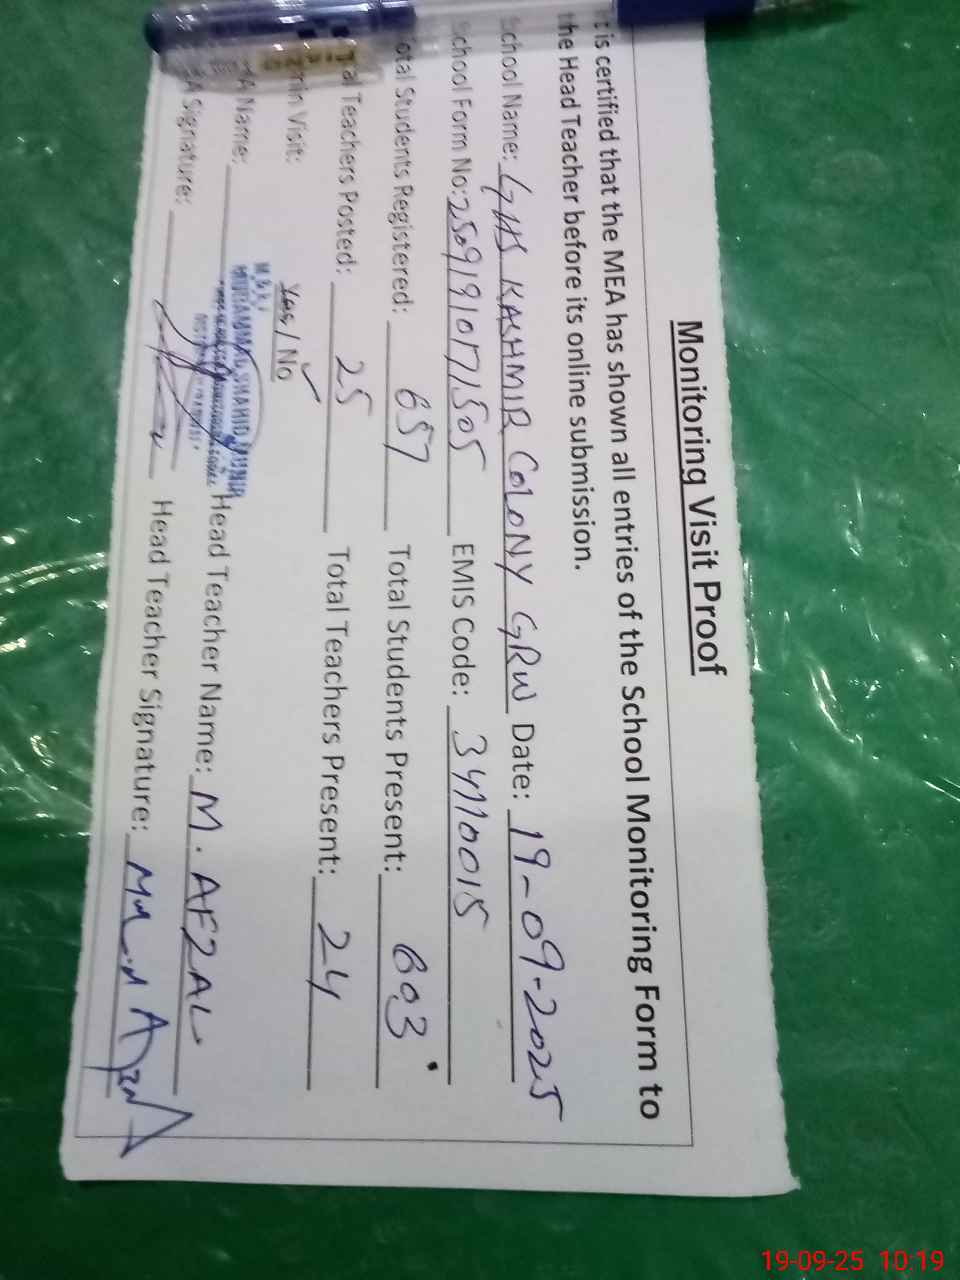 Monitoring Visit Proof
t is certified that the MEA has shown all entries of the School Monitoring Form to
the Head Teacher before its online submission.
School Name: GHS KASHMIR COLONY GRW Date: 19-09-2025
School Form No: 25091910171505 EMIS Code: 34110015
otal Students Registered: 657 Total Students Present: 603
al Teachers Posted: 25 Total Teachers Present: 24
min Visit: Yes / No ✓
A Name: MUHAMMAD SHAHID MUNIR Head Teacher Name: M. AFZAL
A Signature: Head Teacher Signature:
19-09-25 10:19